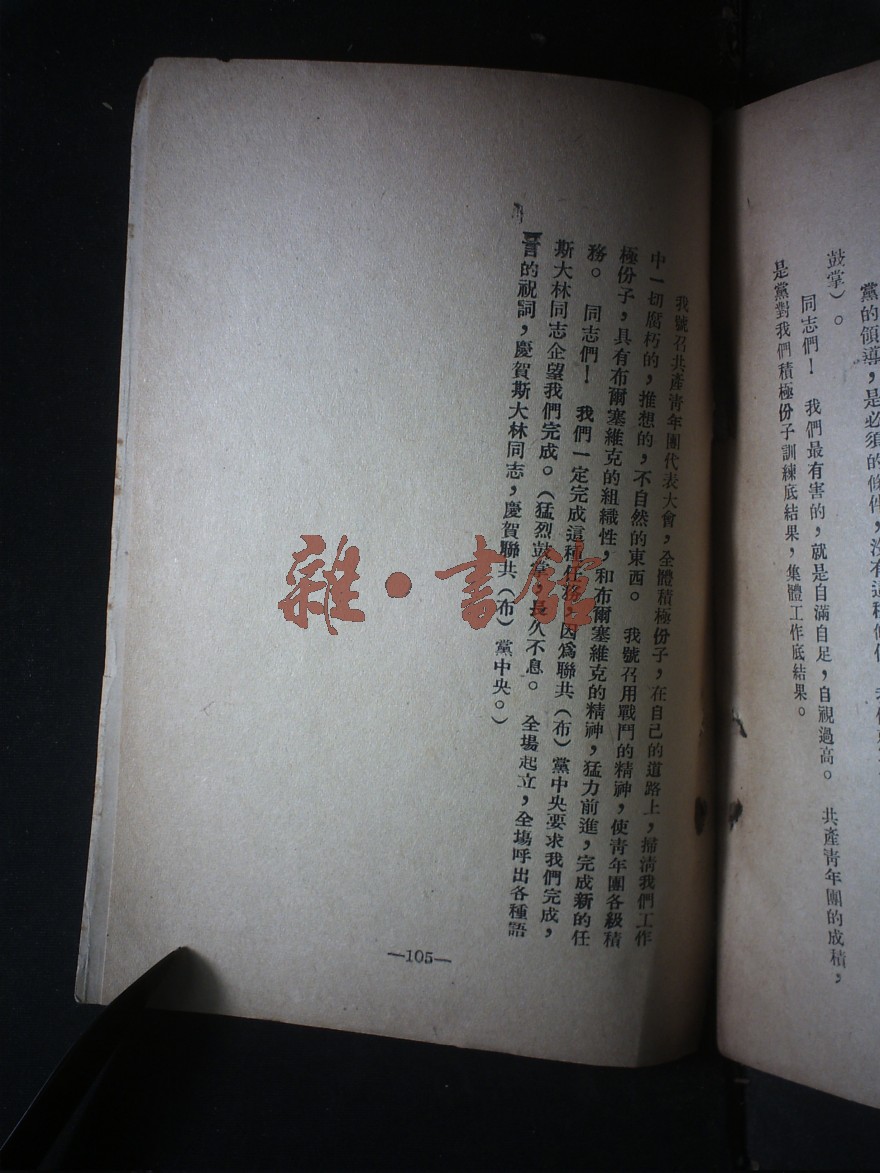 黨的領導，是必須的條件，沒有這種條件，
鼓掌）。
同志們！　我們最有害的，就是自滿自足，自視過高。　共產靑年團的成積，
是黨對我們積極份子訓練底結果，集體工作底結果。
我號召共產靑年團代表大會，全體積極份子，在自己的道路上，掃淸我們工作
中一切腐朽的，推想的，不自然的東西。　我號召用戰鬥的精神，使靑年團各級積
極份子，具有布爾塞維克的組織性，和布爾塞維克的精神，猛力前進，完成新的任
務。　同志們！　我們一定完成這種任務，因爲聯共（布）黨中央要求我們完成，
斯大林同志企望我們完成。（猛烈鼓掌，長久不息。　全場起立，全塲呼出各種語
言的祝詞，慶賀斯大林同志，慶賀聯共（布）黨中央。）
—105—
雜·書館